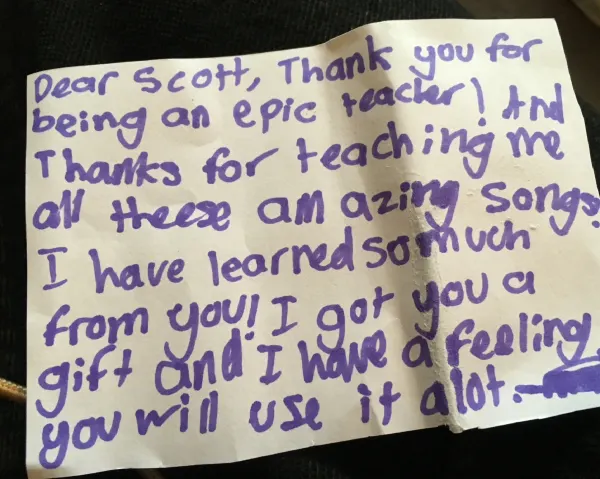 Dear Scott, Thank you for
being an epic teacher! And
Thanks for teaching me
all theese amazing songs!
I have learned so much
from you! I got you a
gift and I have a feeling
you will use it alot.